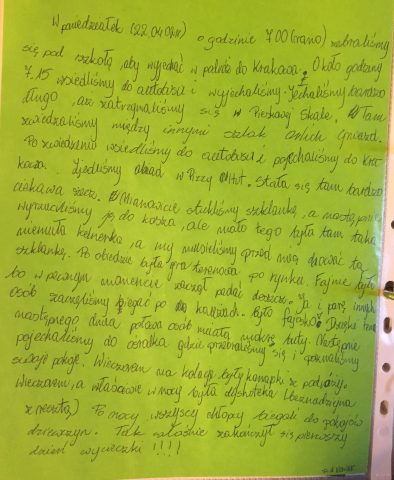 W poniedziałek (22.04.) o godzinie 7.00 (rano) zebraliśmy
się pod szkołą aby wyjechać w podróż do Krakowa. Około godziny
7.15 wsiedliśmy do autobusu i wyjechaliśmy. Jechaliśmy bardzo
długo, aż zatrzymaliśmy się w Pieskowej Skale. Tam
zwiedzaliśmy między innymi szlak Orlich Gniazd.
Po zwiedzaniu wsiedliśmy do autobusu i pojechaliśmy do Kra
kowa. Zjedliśmy obiad w Pizzy Hut. Stała się tam bardzo
ciekawa rzecz. Mianowicie stłukliśmy szklankę, a następnie
wyrzuciliśmy ją do kosza, ale mało tego była tam taka
niemiła kelnerka, a my musieliśmy przed nią chować tą
szklankę. Po obiedzie była gra terenowa po rynku. Fajnie było
bo w pewnym momencie zaczął padać deszcz. Ja i parę innych
osób zaczęliśmy biegać po kałużach. Było fajosko. Dzięki temu
następnego dnia połowa osób miała mokre buty. Następnie
pojechaliśmy do ośrodka gdzie przebraliśmy się i poznaliśmy
swoje pokoje. Wieczorem na kolację były kanapki z podróży.
Wieczorem, a właściwie w nocy była dyskoteka (beznadziejna
zresztą) Po nocy wszyscy chłopcy biegali do pokojów
dziewczyn. Tak właśnie zakończył się pierwszy
dzień wycieczki !!!!